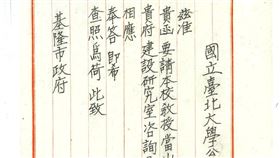 國立臺北大學公
茲准
貴函要請本校教授當
貴府建設研究室咨詢
相應
奉答即希
查照為荷 此致
基隆市政府